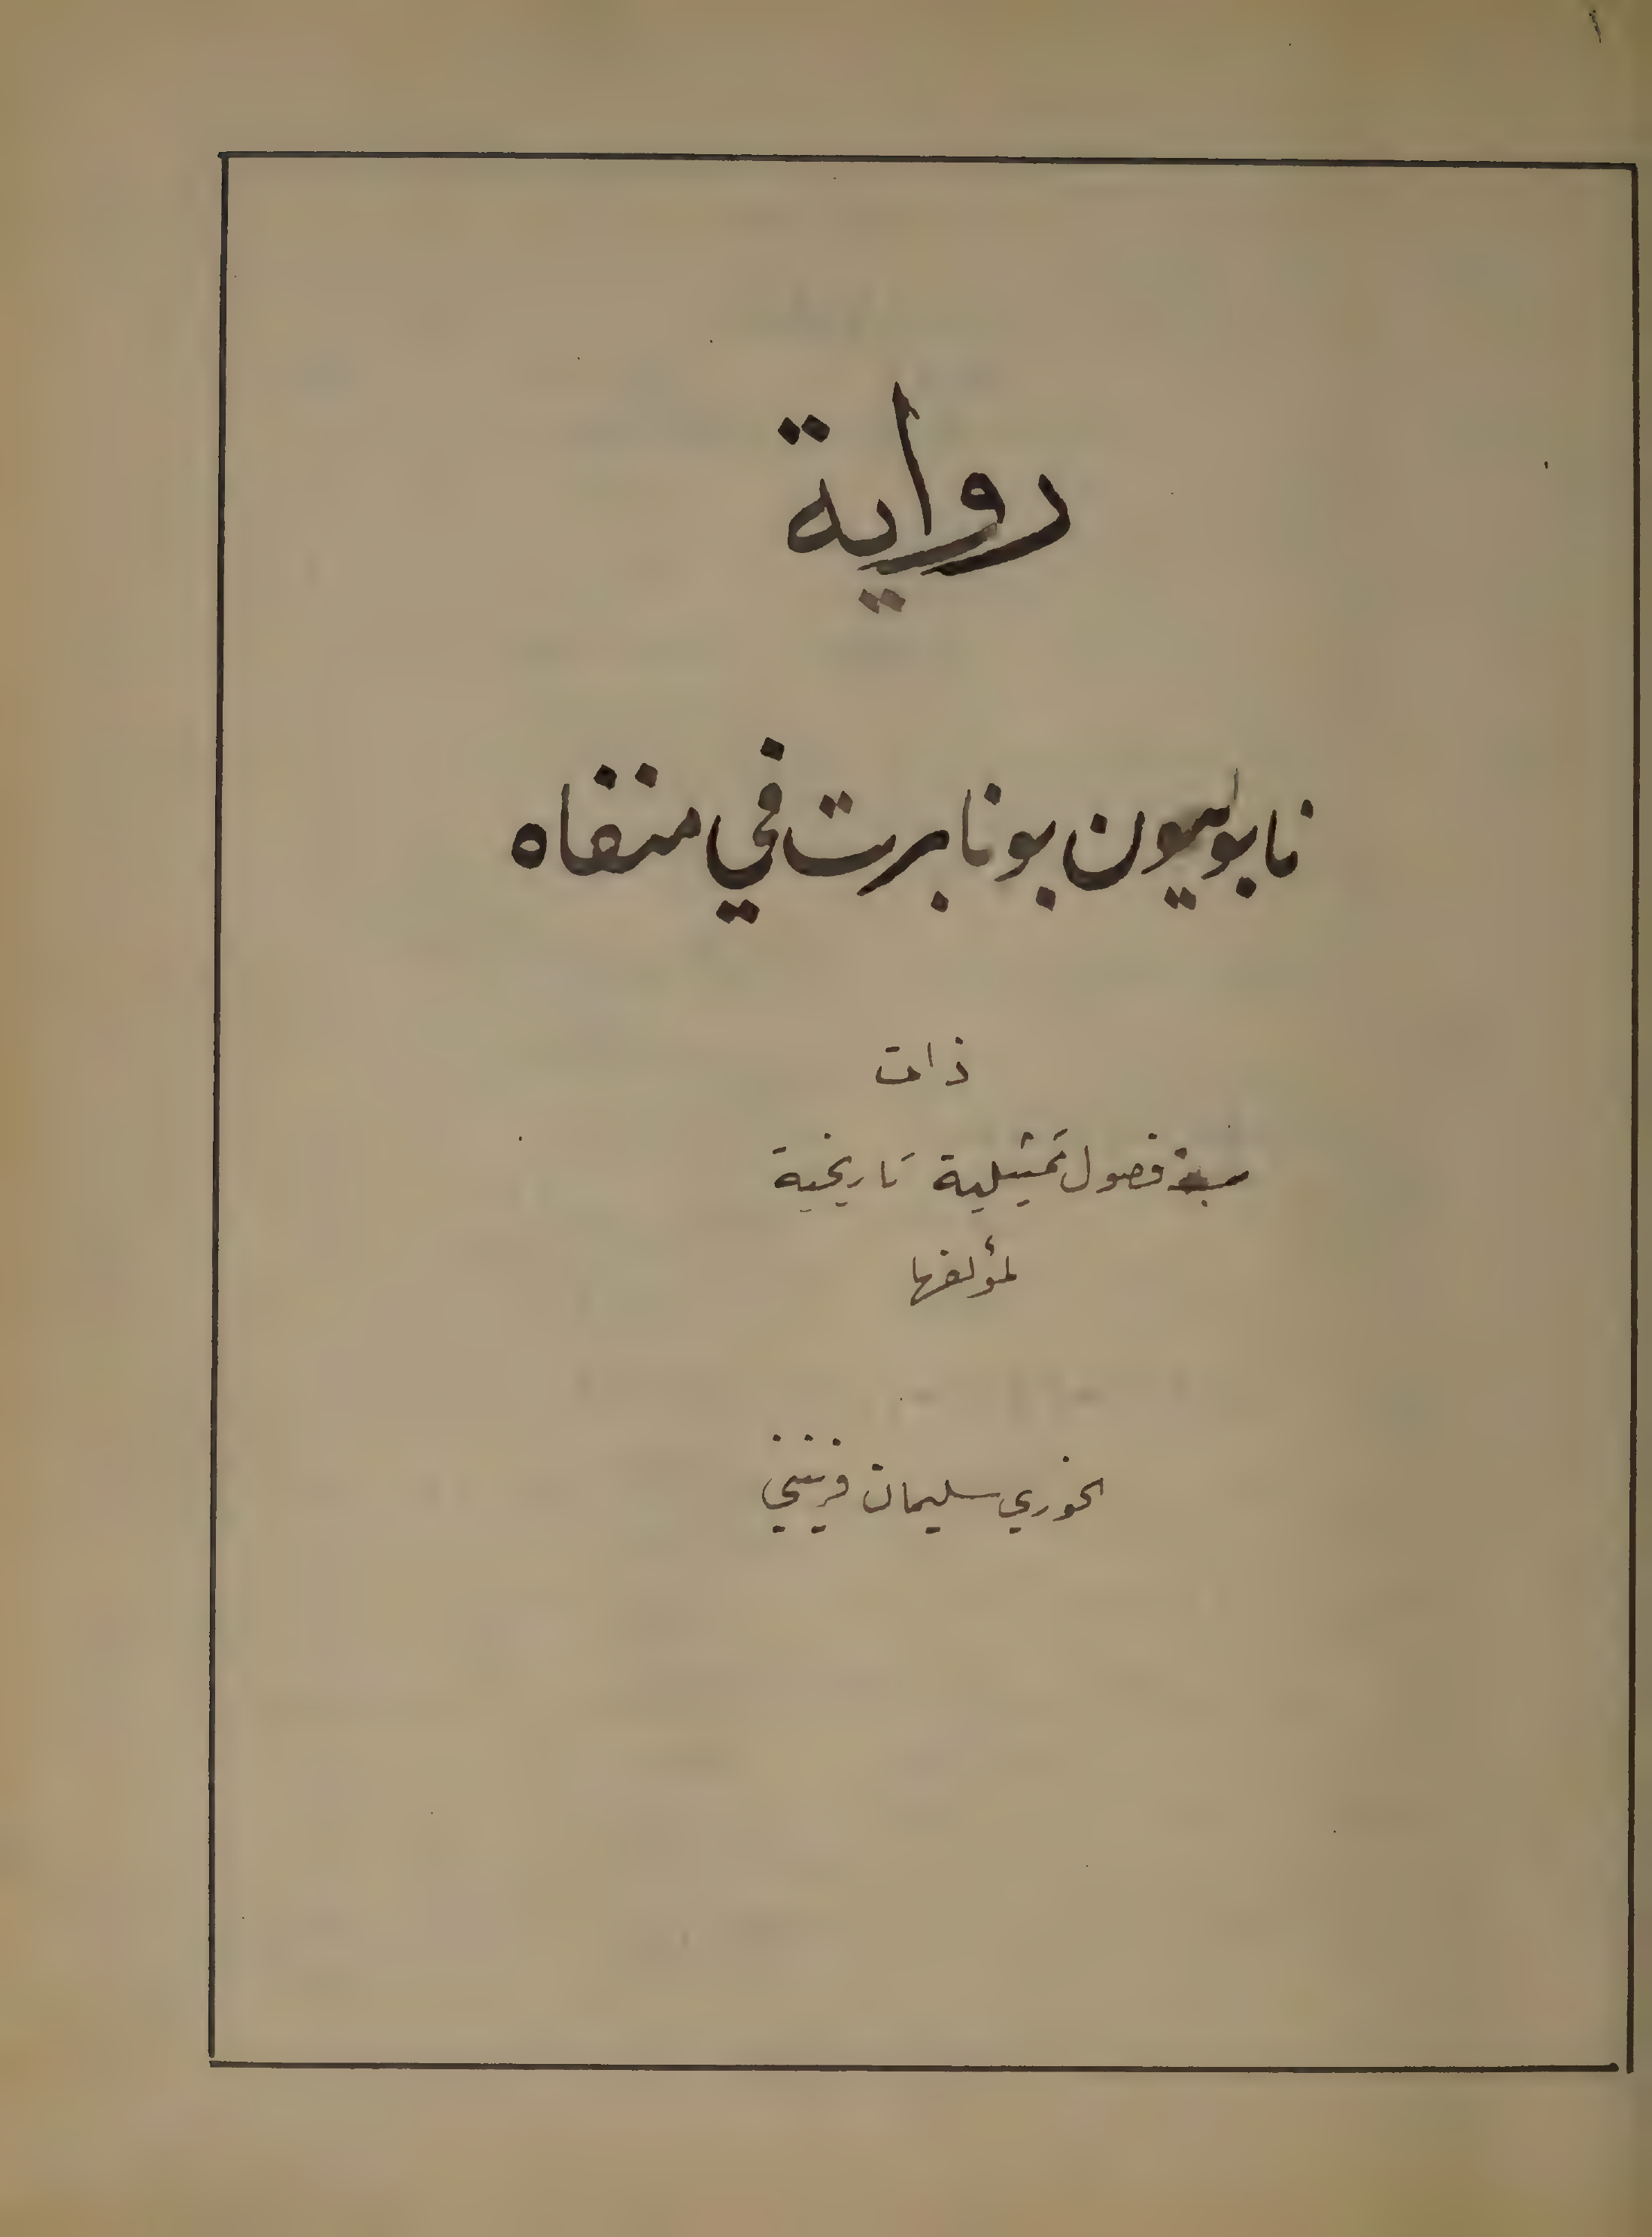 ١
رواية
نابوليون بونابرت في منفاه
ذات
سبعة فصول تمثيلية تاريخية
لمؤلفها
الخوري سليمان فرنيني